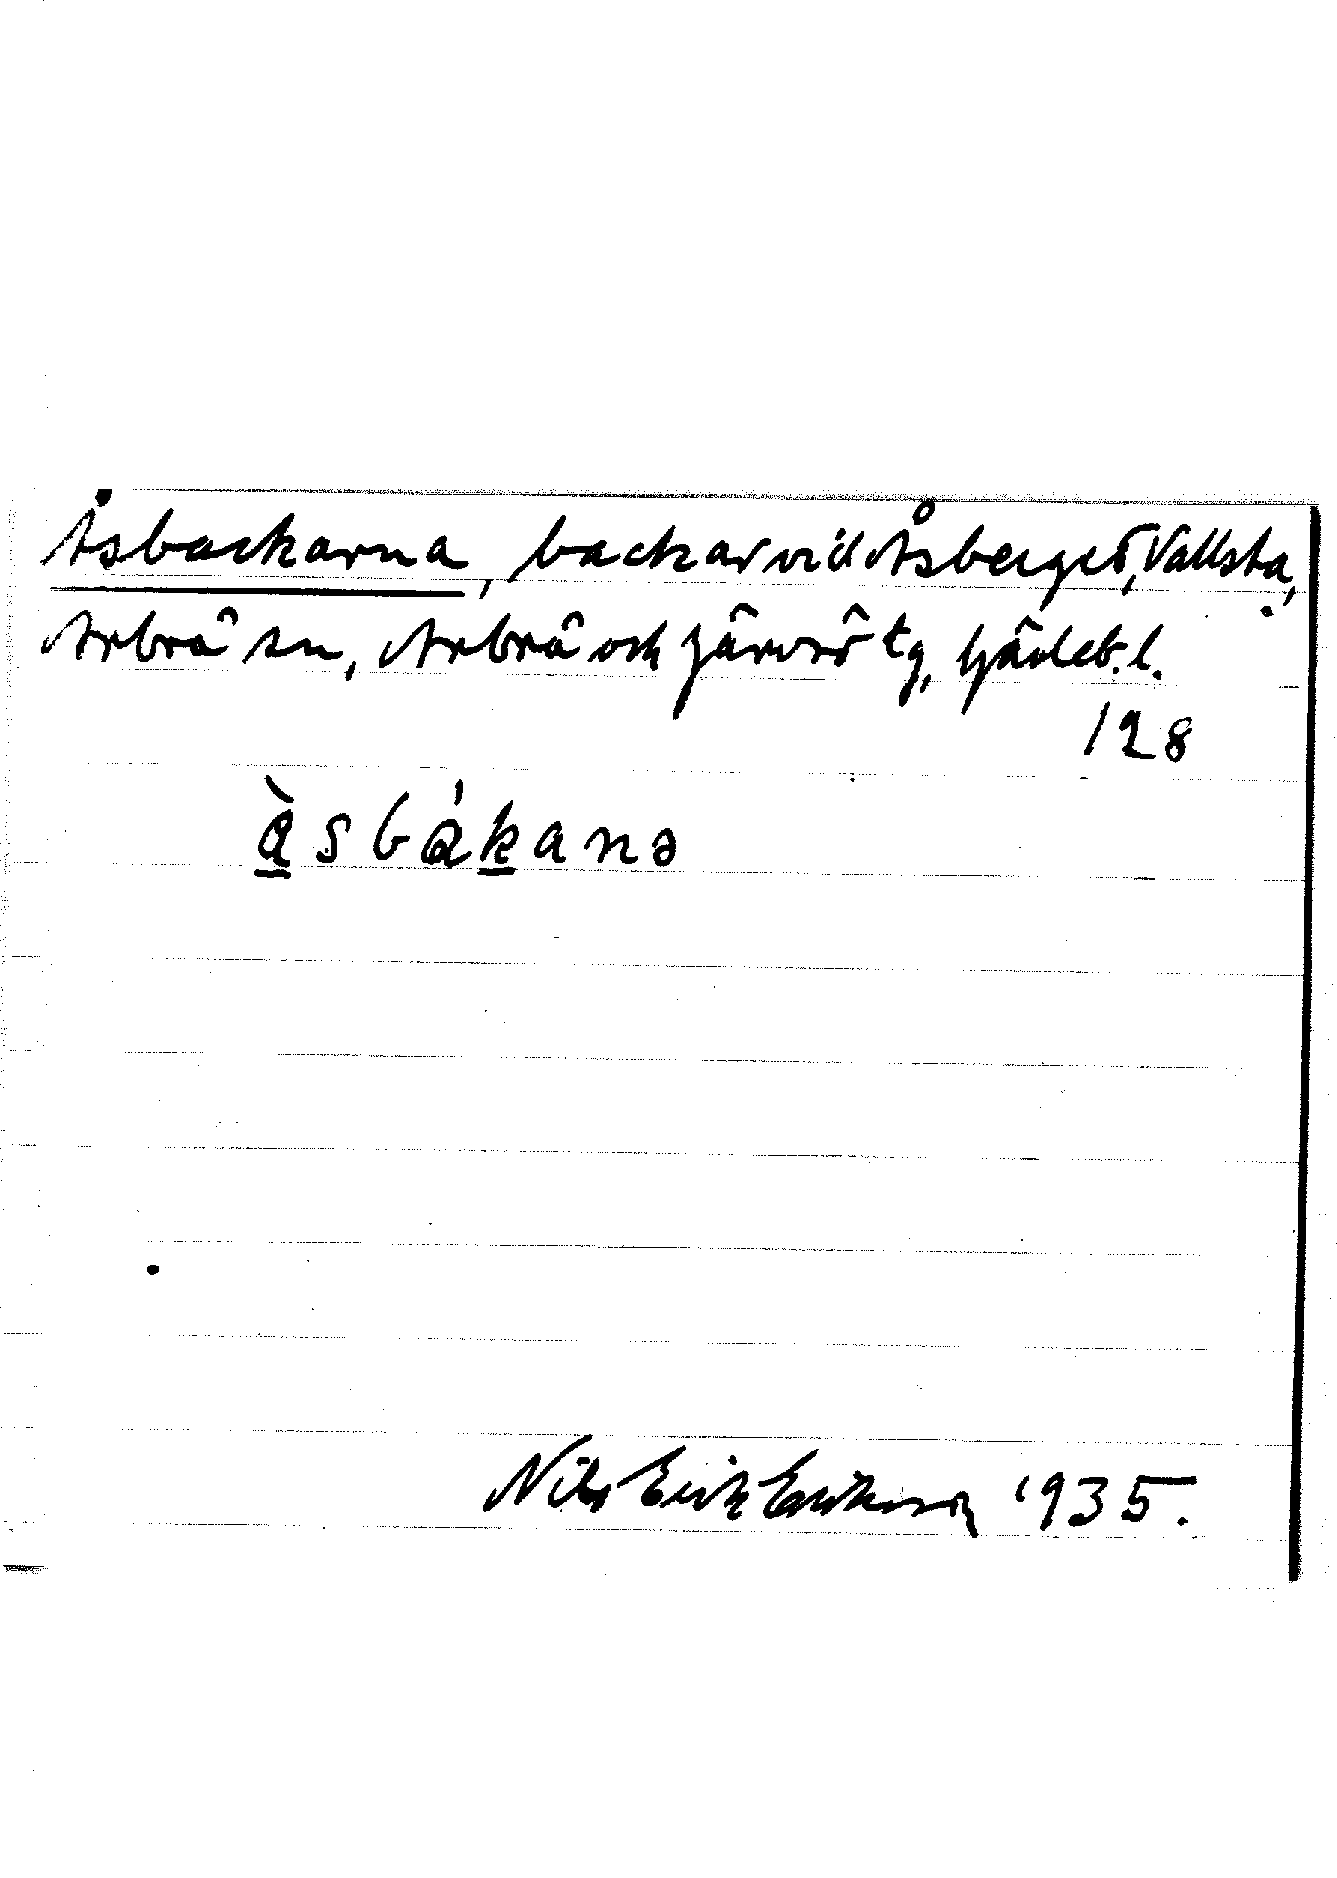 Åsbackarna, backar vid Åsberget, Vallsta,
Arbrå sn, Arbrå och Järvsö tg, Gävleb. l.
128
àsbákanə
Nils Erik Eriksson 1935.